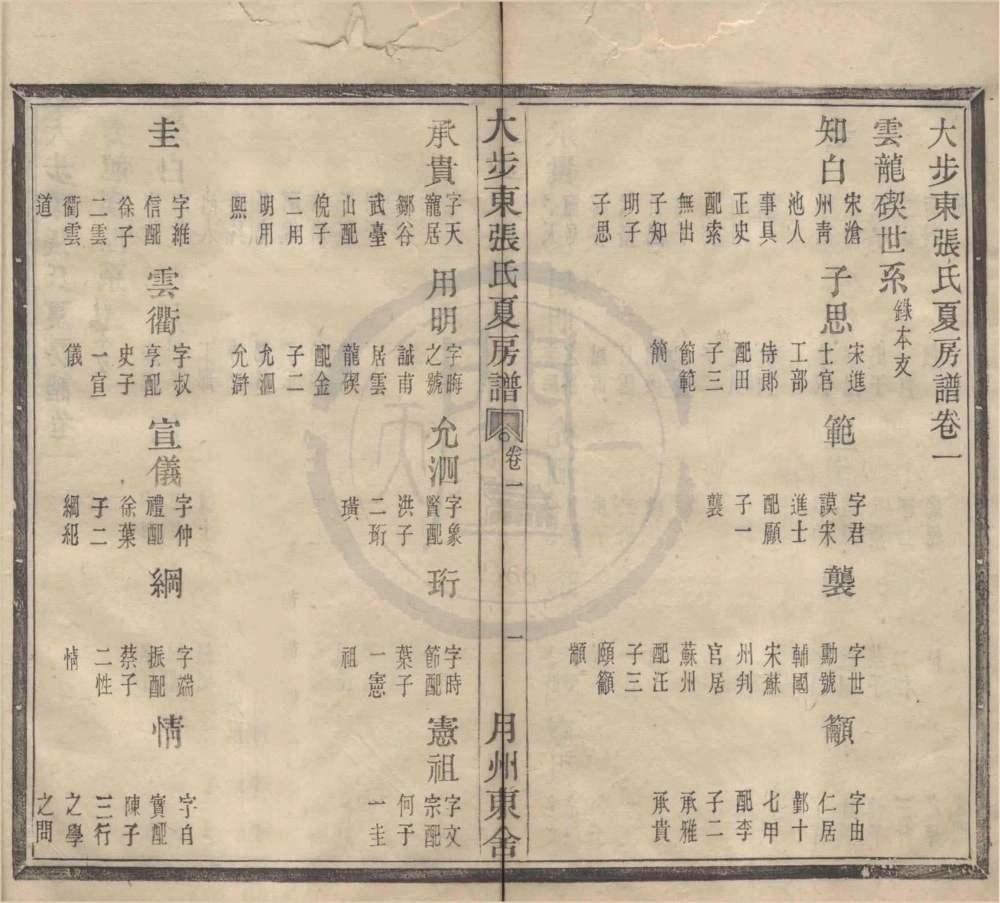 大步東張氏夏房譜卷一
雲龍碶世系錄本支
知白
宋滄
州青
池人
事具
正史
配索
無出
子知
明子
子思
子思
宋進
士官
工部
侍郎
配田
子三
節範
簡
範
字君
謨宋
進士
配顧
子一
襲
襲
字世
勳號
輔國
宋蘇
州判
官居
蘇州
配汪
子三
頤籲
顓
籲
字由
仁居
鄞十
七甲
配李
子二
承雅
承貴
大步東張氏夏房譜
卷一
一
月州東舍
承貴
字天
寵居
鄒谷
武臺
山配
倪子
二用
明用
熙
用明
字晦
之號
誠甫
居雲
龍碶
配金
子二
允泗
允濟
允泗
字象
賢配
洪子
二珩
璜
珩
字時
節配
葉子
一憲
祖
憲祖
字文
宗配
何子
一圭
圭
字維
信配
徐子
二雲
衢雲
道
雲衢
字叔
亨配
史子
一宣
儀
宣儀
字仲
禮配
徐葉
子二
綱紀
綱
字端
振配
蔡子
二性
情
情
字自
實配
陳子
三行
之學
之問